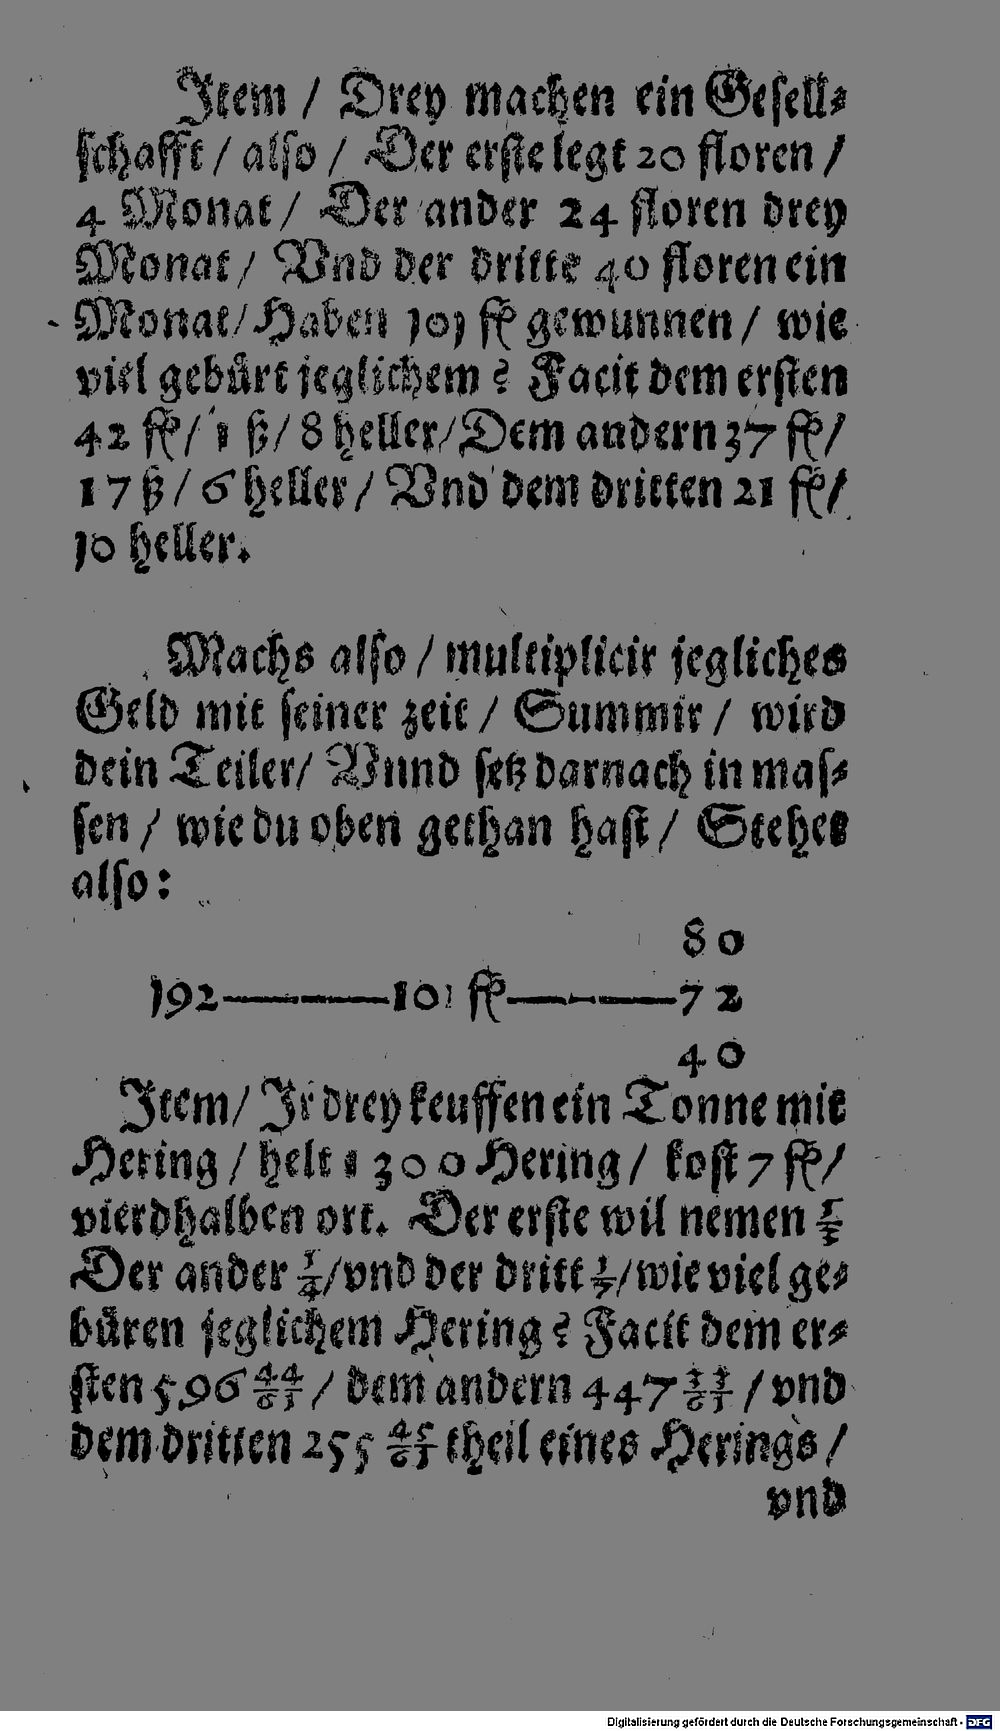 Item / Drey machen ein Gesell⸗
schafft / also / Der erste legt 20 floren /
4 Monat / Der ander 24 floren drey
Monat / Vnd der dritte 40 floren ein
Monat / Haben 101 fl gewunnen / wie
viel gebürt jeglichem? Facit dem ersten
42 fl / 1 ß / 8 heller / Dem andern 37 fl /
17 ß / 6 heller / Vnd dem dritten 21 fl /
10 heller.
Machs also / multiplicir jegliches
Geld mit seiner zeit / Summir / wird
dein Teiler / Vnnd setz darnach in mas⸗
sen / wie du oben gethan hast / Stehet
also:
80
192 ——— 101 fl ——— 72
40
Item / Ir drey keuffen ein Tonne mit
Hering / helt 1300 Hering / kost 7 fl /
vierdhalben ort. Der erste wil nemen
Der ander 1/4 / vnd der dritt 1/7 / wie viel ge⸗
büren jeglichem Hering? Facit dem er⸗
sten 596 44/83 / dem andern 447 33/83 / vnd
dem dritten 255 theil eines Herings /
vnd
Digitalisierung gefördert durch die Deutsche Forschungsgemeinschaft - DFG